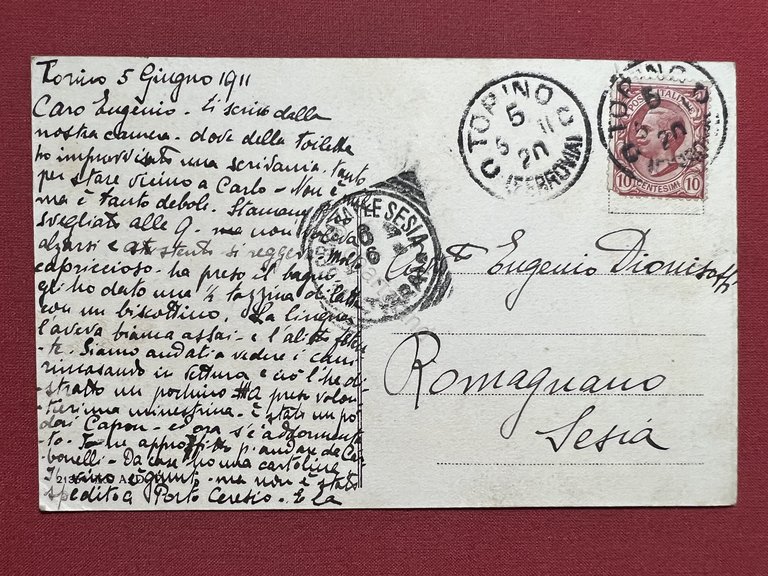 Torino 5 Giugno 1911
Caro Eugenio - Ti scrivo dalla
nostra camera - dove della toiletta
ho improvvisato una scrivania - tanto
per stare vicino a Carlo - Non è
ma è tanto debole. Stamane
svegliato alle 9 - ma non voleva
alzarsi e a stento si reggeva. Molto
capriccioso - ha preso il bagno
gli ho dato una ½ tazzina di latte
con un biscottino. La lingua
l'aveva bianca assai - e l'alito
-te. Siamo andati a vedere i cani
rimanendo in vettura e ciò l'ha di-
-stratto un pochino. Ha preso volon-
-tieri una minestrina - è stato un po'
dai Capon - ed ora s'è addormenta-
-to. Io ne approfitto p. andare da Car-
bonelli - Da casa ho una cartolina
Il vino è giunto - ma non è stato
spedito a Porto Ceresio - E la
TORINO
5
6 11
20
(FERROVIA)
TORINO
5
20
POSTE ITALIANE
10 CENTESIMI 10
SESIA
6
Eugenio Dionisotti
Romagnano
Sesia